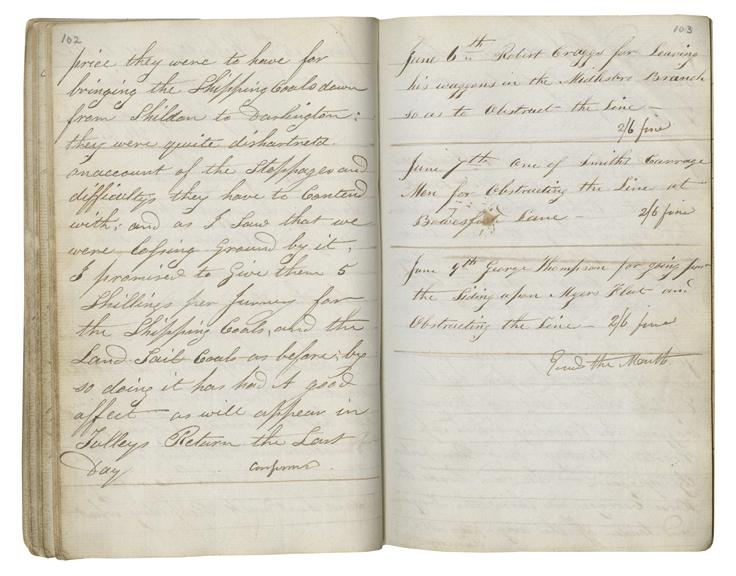 102
price they were to have for
bringing the Shipping Coals down
from Shildon to Darlington:
they were quite dishartned
onaccount of the Stoppages and
difficultys they have to Contend
with; and as I Saw that we
were Lossing Ground by it.
I promised to Give them 5
Shillings per Jurney for
the Shipping Coals, and the
Land Sail Coals as before; by
so doing it has had A good
affect as will appear in
Tulleys Return the Last
Day Confirmd.
103
June 6th Robert Craggs for Leaving
his waggons in the Midlsbro Branch
so as to Obstruct the Line —
2/6 fine
June 7th One of Smiths Carrage
Men for Obstructing the Line at
Bowesfield Lane — 2/6 fine
June 9th George Thompson for going for
the Siding upon Myer Flat and
Obstructing the Line — 2/6 fine
the Month